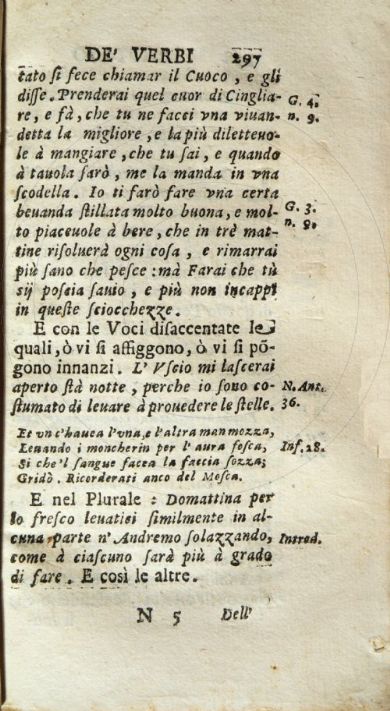 DE' VERBI 297
tato si fece chiamar il Cuoco, e gli
disse. Prenderai quel cuor di Cinglia- G. 4.
re, e fà, che tu ne facci vna viuan- n. 9.
detta la migliore, e la più diletteuo-
le à mangiare, che tu sai, e quando
à tauola sarò, me la manda in vna
scodella. Io ti farò fare vna certa
beuanda stillata molto buona, e mol- G. 3.
to piaceuole à bere, che in trè mat- n. 8.
tine risoluerà ogni cosa, e rimarrai
più sano che pesce: mà Farai che tù
sij poscia sauio, e più non incappi
in queste sciocchezze.
E con le Voci disaccentate le
quali, ò vi si affiggono, ò vi si põ-
gono innanzi. L' Vscio mi lascerai
aperto stà notte, perche io sono co- N. Ant.
stumato di leuare à prouedere le stelle. 36.
Et vn c'hauea l'vna, e l'altra man mozza,
Leuando i moncherin per l'aura fosca, Inf. 28.
Si che'l sangue facea la faccia sozza;
Gridò. Ricorderati anco del Mosca.
E nel Plurale: Domattina per
lo fresco leuatisi similmente in al-
cuna parte n' Andremo solazzando, Introd.
come à ciascuno sarà più à grado
di fare. E così le altre.
N 5 Dell'